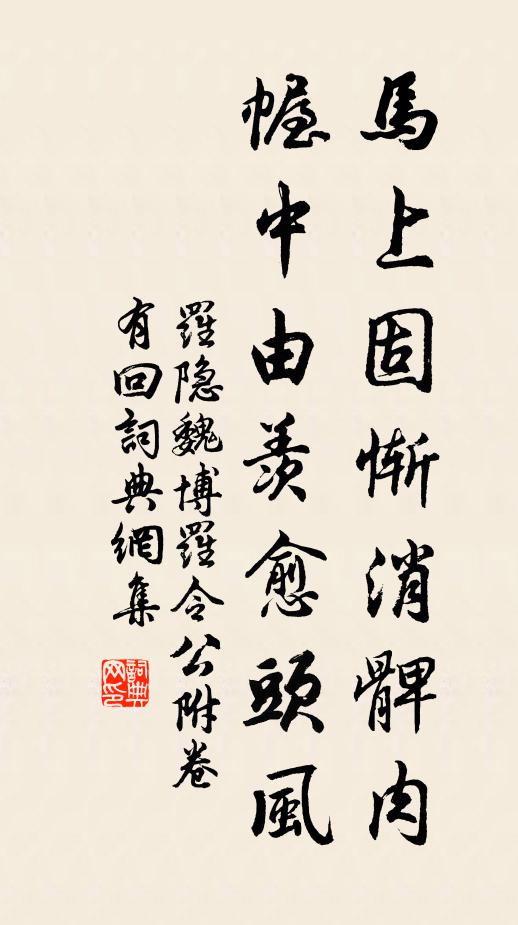 馬上固慚消髀肉
幄中由羨愈頭風
羅隐魏博羅令公附卷
有回詞典網集
詞典网印